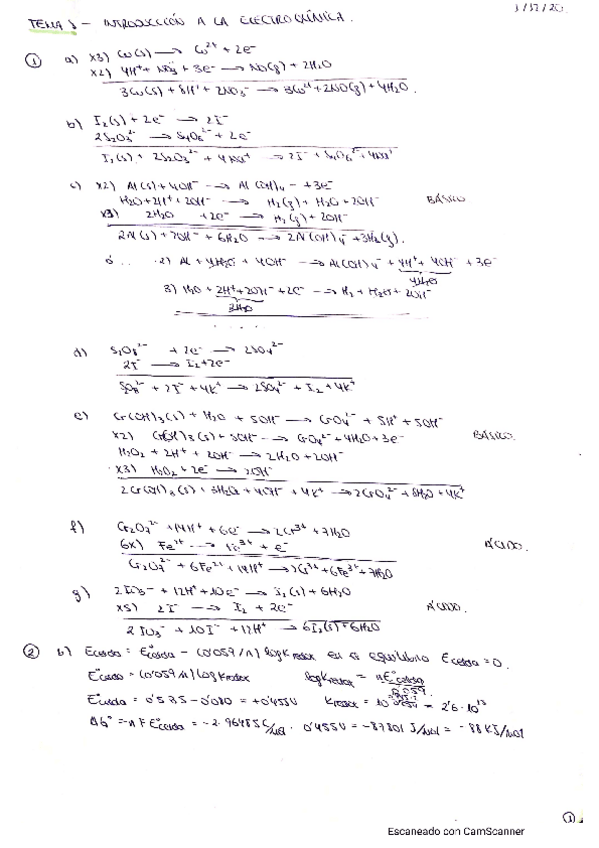 TEMA 3 - INTRODUCCIÓN A LA ELECTROQUÍMICA.
① a) x3) Cu(s) → Cu²⁺ + 2e⁻
x2) 4H⁺ + NO₃⁻ + 3e⁻ → NO(g) + 2H₂O
3Cu(s) + 8H⁺ + 2NO₃⁻ → 3Cu²⁺ + 2NO(g) + 4H₂O.
b) I₂(s) + 2e⁻ → 2I⁻
2S₂O₃²⁻ → S₄O₆²⁻ + 2e⁻
I₂(s) + 2S₂O₃²⁻ + 4Na⁺ → 2I⁻ + S₄O₆²⁻ + 4Na⁺
c) x2) Al(s) + 4OH⁻ → Al(OH)₄⁻ + 3e⁻
H₂O + 2H⁺ + 2OH⁻ → H₂(g) + H₂O + 2OH⁻ BÁSICO
x3) 2H₂O + 2e⁻ → H₂(g) + 2OH⁻
2Al(s) + 2OH⁻ + 6H₂O → 2Al(OH)₄⁻ + 3H₂(g).
ó .. 2) Al + 4H₂O + 4OH⁻ → Al(OH)₄⁻ + 4H⁺ + 4OH⁻ + 3e⁻
4H₂O
3) H₂O + 2H⁺ + 2OH⁻ + 2e⁻ → H₂ + H₂O + 2OH⁻
2H₂O
d) S₂O₈²⁻ + 2e⁻ → 2SO₄²⁻
2I⁻ → I₂ + 2e⁻
+ 2I⁻ + 4K⁺ → 2SO₄²⁻ + I₂ + 4K⁺
e) Cr(OH)₃(s) + H₂O + 5OH⁻ → CrO₄²⁻ + 5H⁺ + 5OH⁻
x2) Cr(OH)₃(s) + 5OH⁻ → CrO₄²⁻ + 4H₂O + 3e⁻ BÁSICO.
H₂O₂ + 2H⁺ + 2OH⁻ → 2H₂O + 2OH⁻
x3) H₂O₂ + 2e⁻ → 2OH⁻
2Cr(OH)₃(s) + 3H₂O₂ + 4OH⁻ + 4K⁺ → 2CrO₄²⁻ + 8H₂O + 4K⁺
f) Cr₂O₇²⁻ + 14H⁺ + 6e⁻ → 2Cr³⁺ + 7H₂O
6x) Fe²⁺ → Fe³⁺ + e⁻ ÁCIDO.
Cr₂O₇²⁻ + 6Fe²⁺ + 14H⁺ → 2Cr³⁺ + 6Fe³⁺ + 7H₂O
g) 2IO₃⁻ + 12H⁺ + 10e⁻ → I₂(s) + 6H₂O
x5) 2I⁻ → I₂ + 2e⁻ ÁCIDO.
2IO₃⁻ + 10I⁻ + 12H⁺ → 6I₂(s) + 6H₂O
② b) Ecelda = E°celda - (0'059/n) logKredox en el equilibrio Ecelda = 0.
E°celda = (0'059/n) logKredox logKredox = nE°celda / 0'059.
E°celda = 0'535 - 0'080 = +0'455V Kredox = 10 = 2'6 · 10¹⁵
ΔG° = -nFE°celda = -2 · 96485C/mol · 0'455V = -87801 J/mol = -88 KJ/mol
①
Escaneado con CamScanner